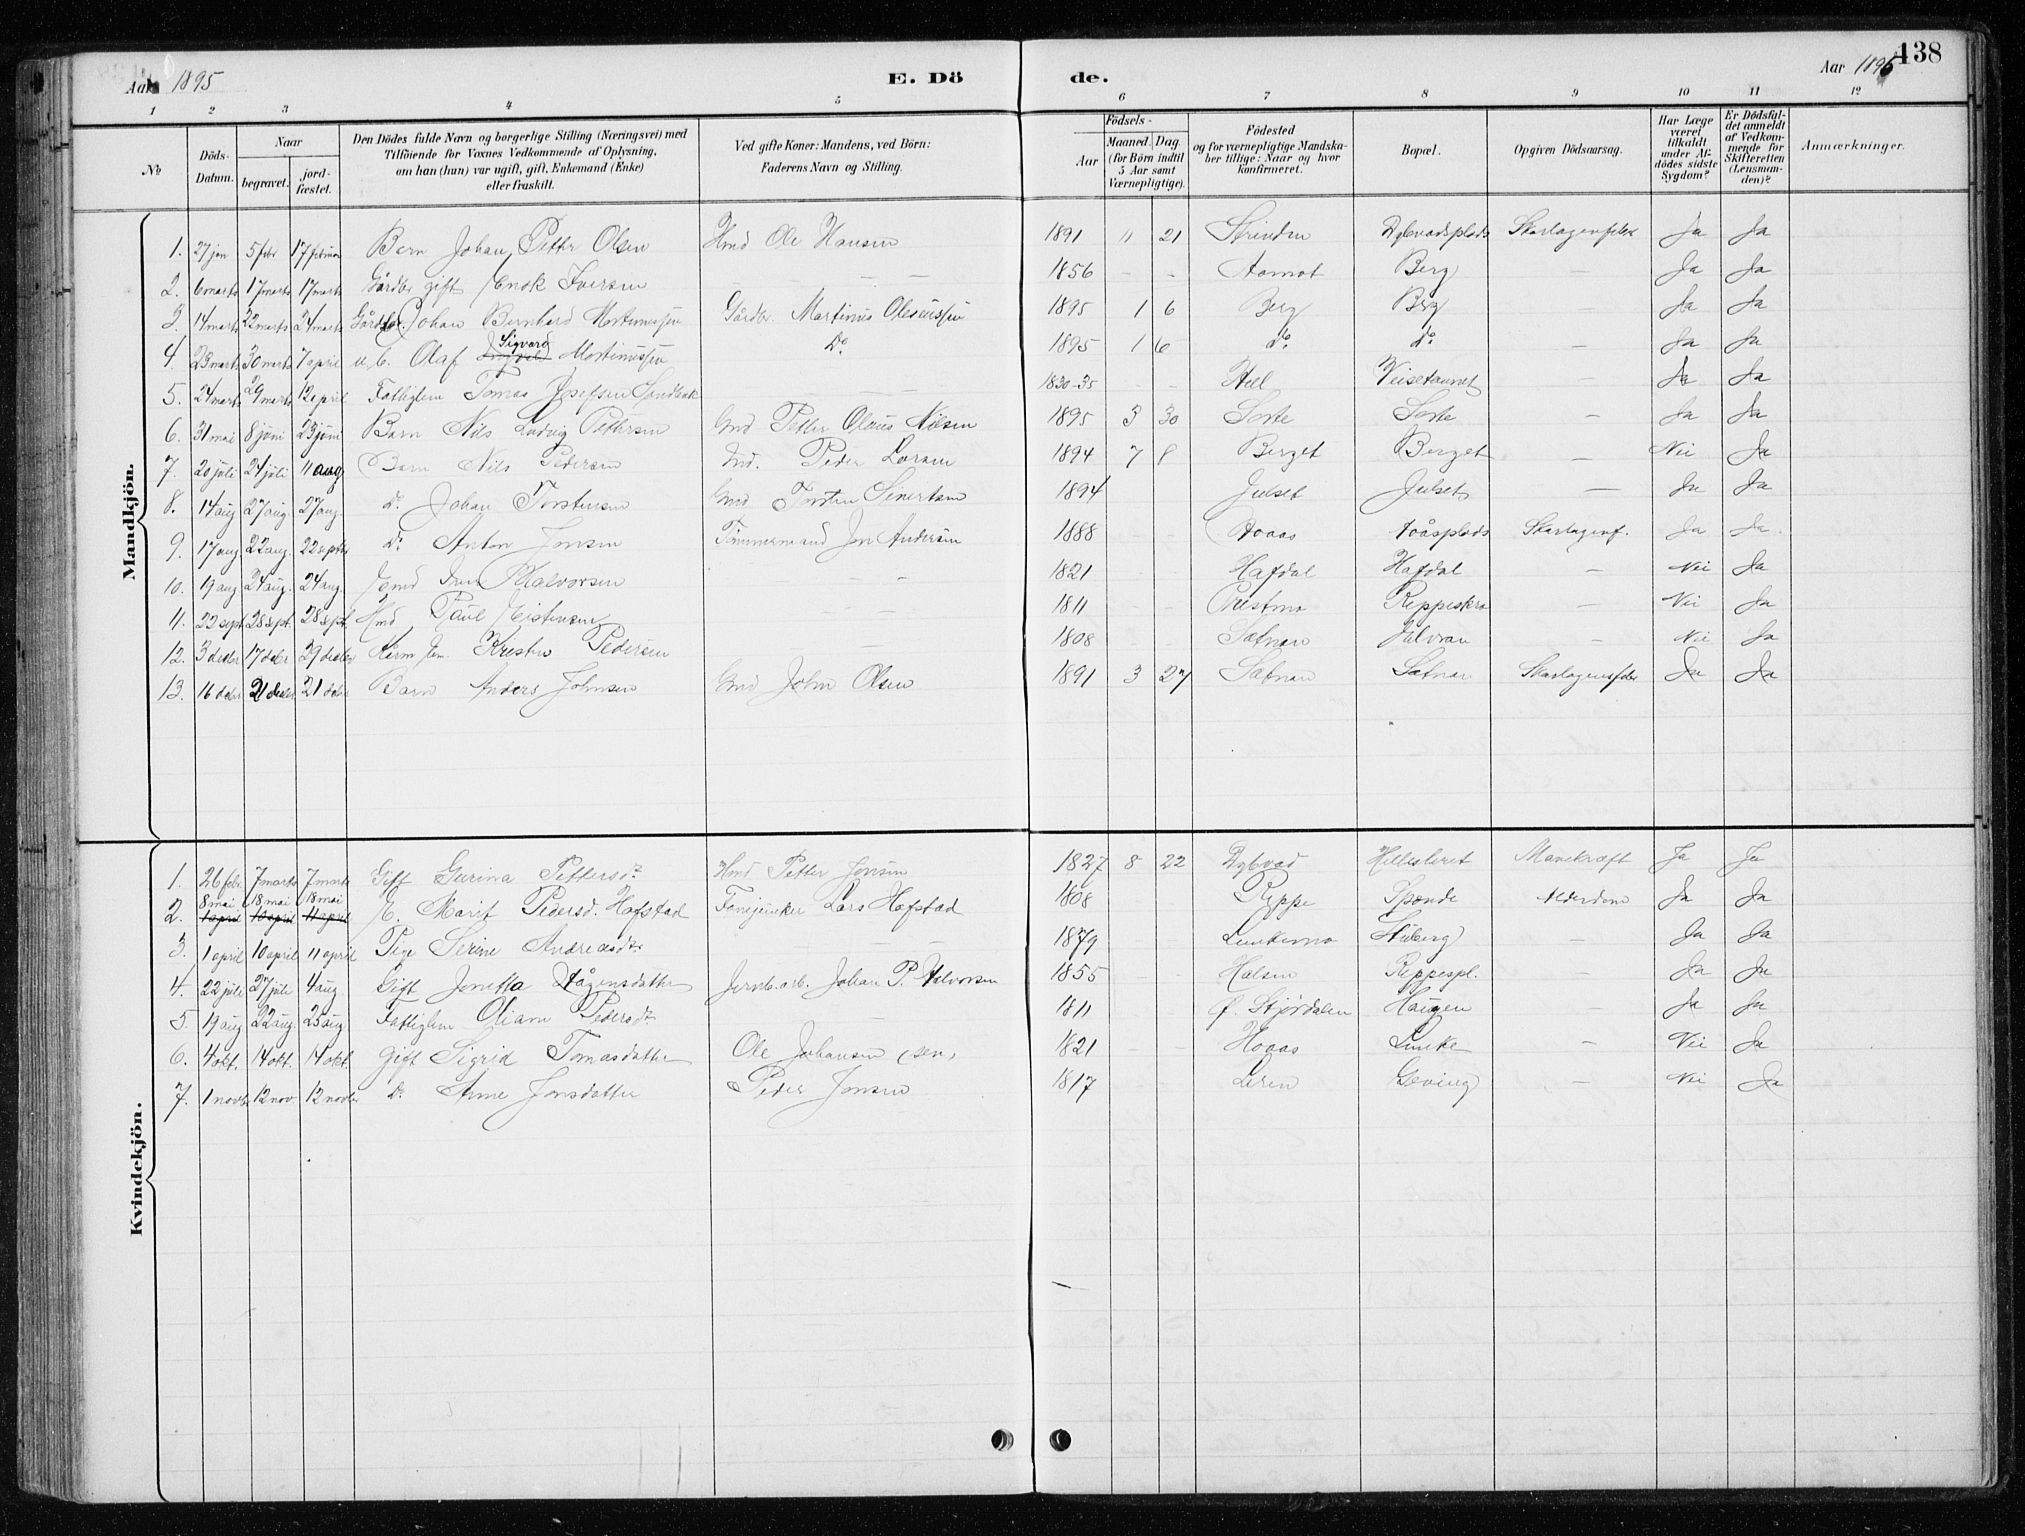 Aar 1895
E. Dö
de.
Aar 1895
138
1 2 3 4 5 6 7 8 9 10 11 12
No
Döds-Datum.
Naar
begravet.
jord-fæstet.
Den Dödes fulde Navn og borgerlige Stilling (Næringsvei) med Tilföiende for Voxnes Vedkommende af Oplysning, om han (hun) var ugift, gift, Enkemand (Enke) eller fraskilt.
Ved gifte Koner: Mandens, ved Börn: Faderens Navn og Stilling.
Födsels-
Aar
Maaned.
Dag.
(for Börn indtil 5 Aar samt Værnepligtige).
Födested og for værnepligtige Mandskaber tillige: Naar og hvor konfirmeret.
Bopæl.
Opgiven Dödsaarsag.
Har Læge været tilkaldt under Afdödes sidste Sygdom?
Er Dödsfaldet anmeldt af Vedkommende for Skifteretten (Lensmanden)?
Anmærkninger.
Mandkjön.
1. 27 jan 5 febr 17 februar Barn Johan Petter Olsen Hmd Ole Hansen 1891 11 21 Strinden Dybvadsplads Skarlagensfeber Ja Ja
2. 6 marts 17 marts 17 marts Gårdbr gift Enok Iversen — — 1856 - - Aamot Berg — Ja Ja
3. 14 marts 22 marts 24 marts Gårdbr. Johan Bernhard Martinussen Gårdbr. Martinus Olausen 1895 1 6 Berg Berg — Ja Ja
4. 23 marts 30 marts 7 april Olaf Sigvard Martinussen Do 1895 1 6 do do — Ja Ja
5. 24 marts 29 marts 12 april Fattiglem Tomas Josefsen Sandbak — — 1830-35 - - Hell Veisetaunet — Ja Ja
6. 31 mai 8 juni 23 juni Barn Nils Ludvig Pettersen Gmd Petter Olaus Nilsen 1895 3 30 Sorte Sorte — Ja Ja
7. 20 juli 24 juli 11 aug Barn Nils Pedersen Gmd. Peder Larsen 1894 7 8 Berget Berget — Nei Ja
8. 14 aug 27 aug. 27 aug do Johan Torstensen Gmd Torsten Sivertsen 1894 Julset Julset — Ja Ja
9. 17 aug 22 aug. 22 septbr do Anton Jonsen Tømmermand Jon Andersen 1888 - - Hoaas Hoåsplads Skarlagenf. Ja Ja
10. 19 aug 24 aug. 24 aug. Halvorsen - - 1821 - - Hafdal Hafdal — Nei Ja
11. 22 sept. 28 sept. 28 sept. Hmd Paul - - - 1811 - - Prestmo Reppeskra — Nei Ja
12. 3 decbr 17 decbr 29 decbr Kristen Pedersen - - 1808 - - Sætnan — Nei Ja
13. 16 decbr 21 decbr 21 decbr Barn Anders Johnsen Gmd John Olsen 1891 3 27 Sætnan Sætnan Skarlagensfeber Ja Ja
Kvindekjön.
1. 26 febr. 7 marts 7 marts Gift Gurina Pettersdr Hmd Petter Jonsen 1827 8 22 Dybvad Ja Ja
2. 8 mai 18 mai 18 mai
1 april 10 april 11 april E. Marit Pedersd. Hofstad Lars Hofstad 1808 Reppe Sponde Alderdom Ja Ja
3. 1 april 10 april 11 april Pige Serine Andreasdtr — — 1879 - - Lunkemo Stuberg — Ja Ja
4. 22 juli 27 juli 4 aug Gift Jonetta Hågensdatter Jernb.arb. Johan P. Halvorsen 1855 - - Halsen Reppespl. — Ja Ja
5. 19 aug 22 aug. 25 aug Fattiglem Oliane Pedersdr — — 1811 - - Ø. Stjørdalen Haugen Ja Ja
6. 4 okt. 14 okt. 14 okt. Gift Sigrid Tomasdatter Ole Johansen (sen) 1821 - - Hoaas Lunke — Nei Ja
7. 1 novbr 12 nov 12 novbr do Anne Jonsdatter Peder Jonsen 1817 Leren Geving — Nei Ja